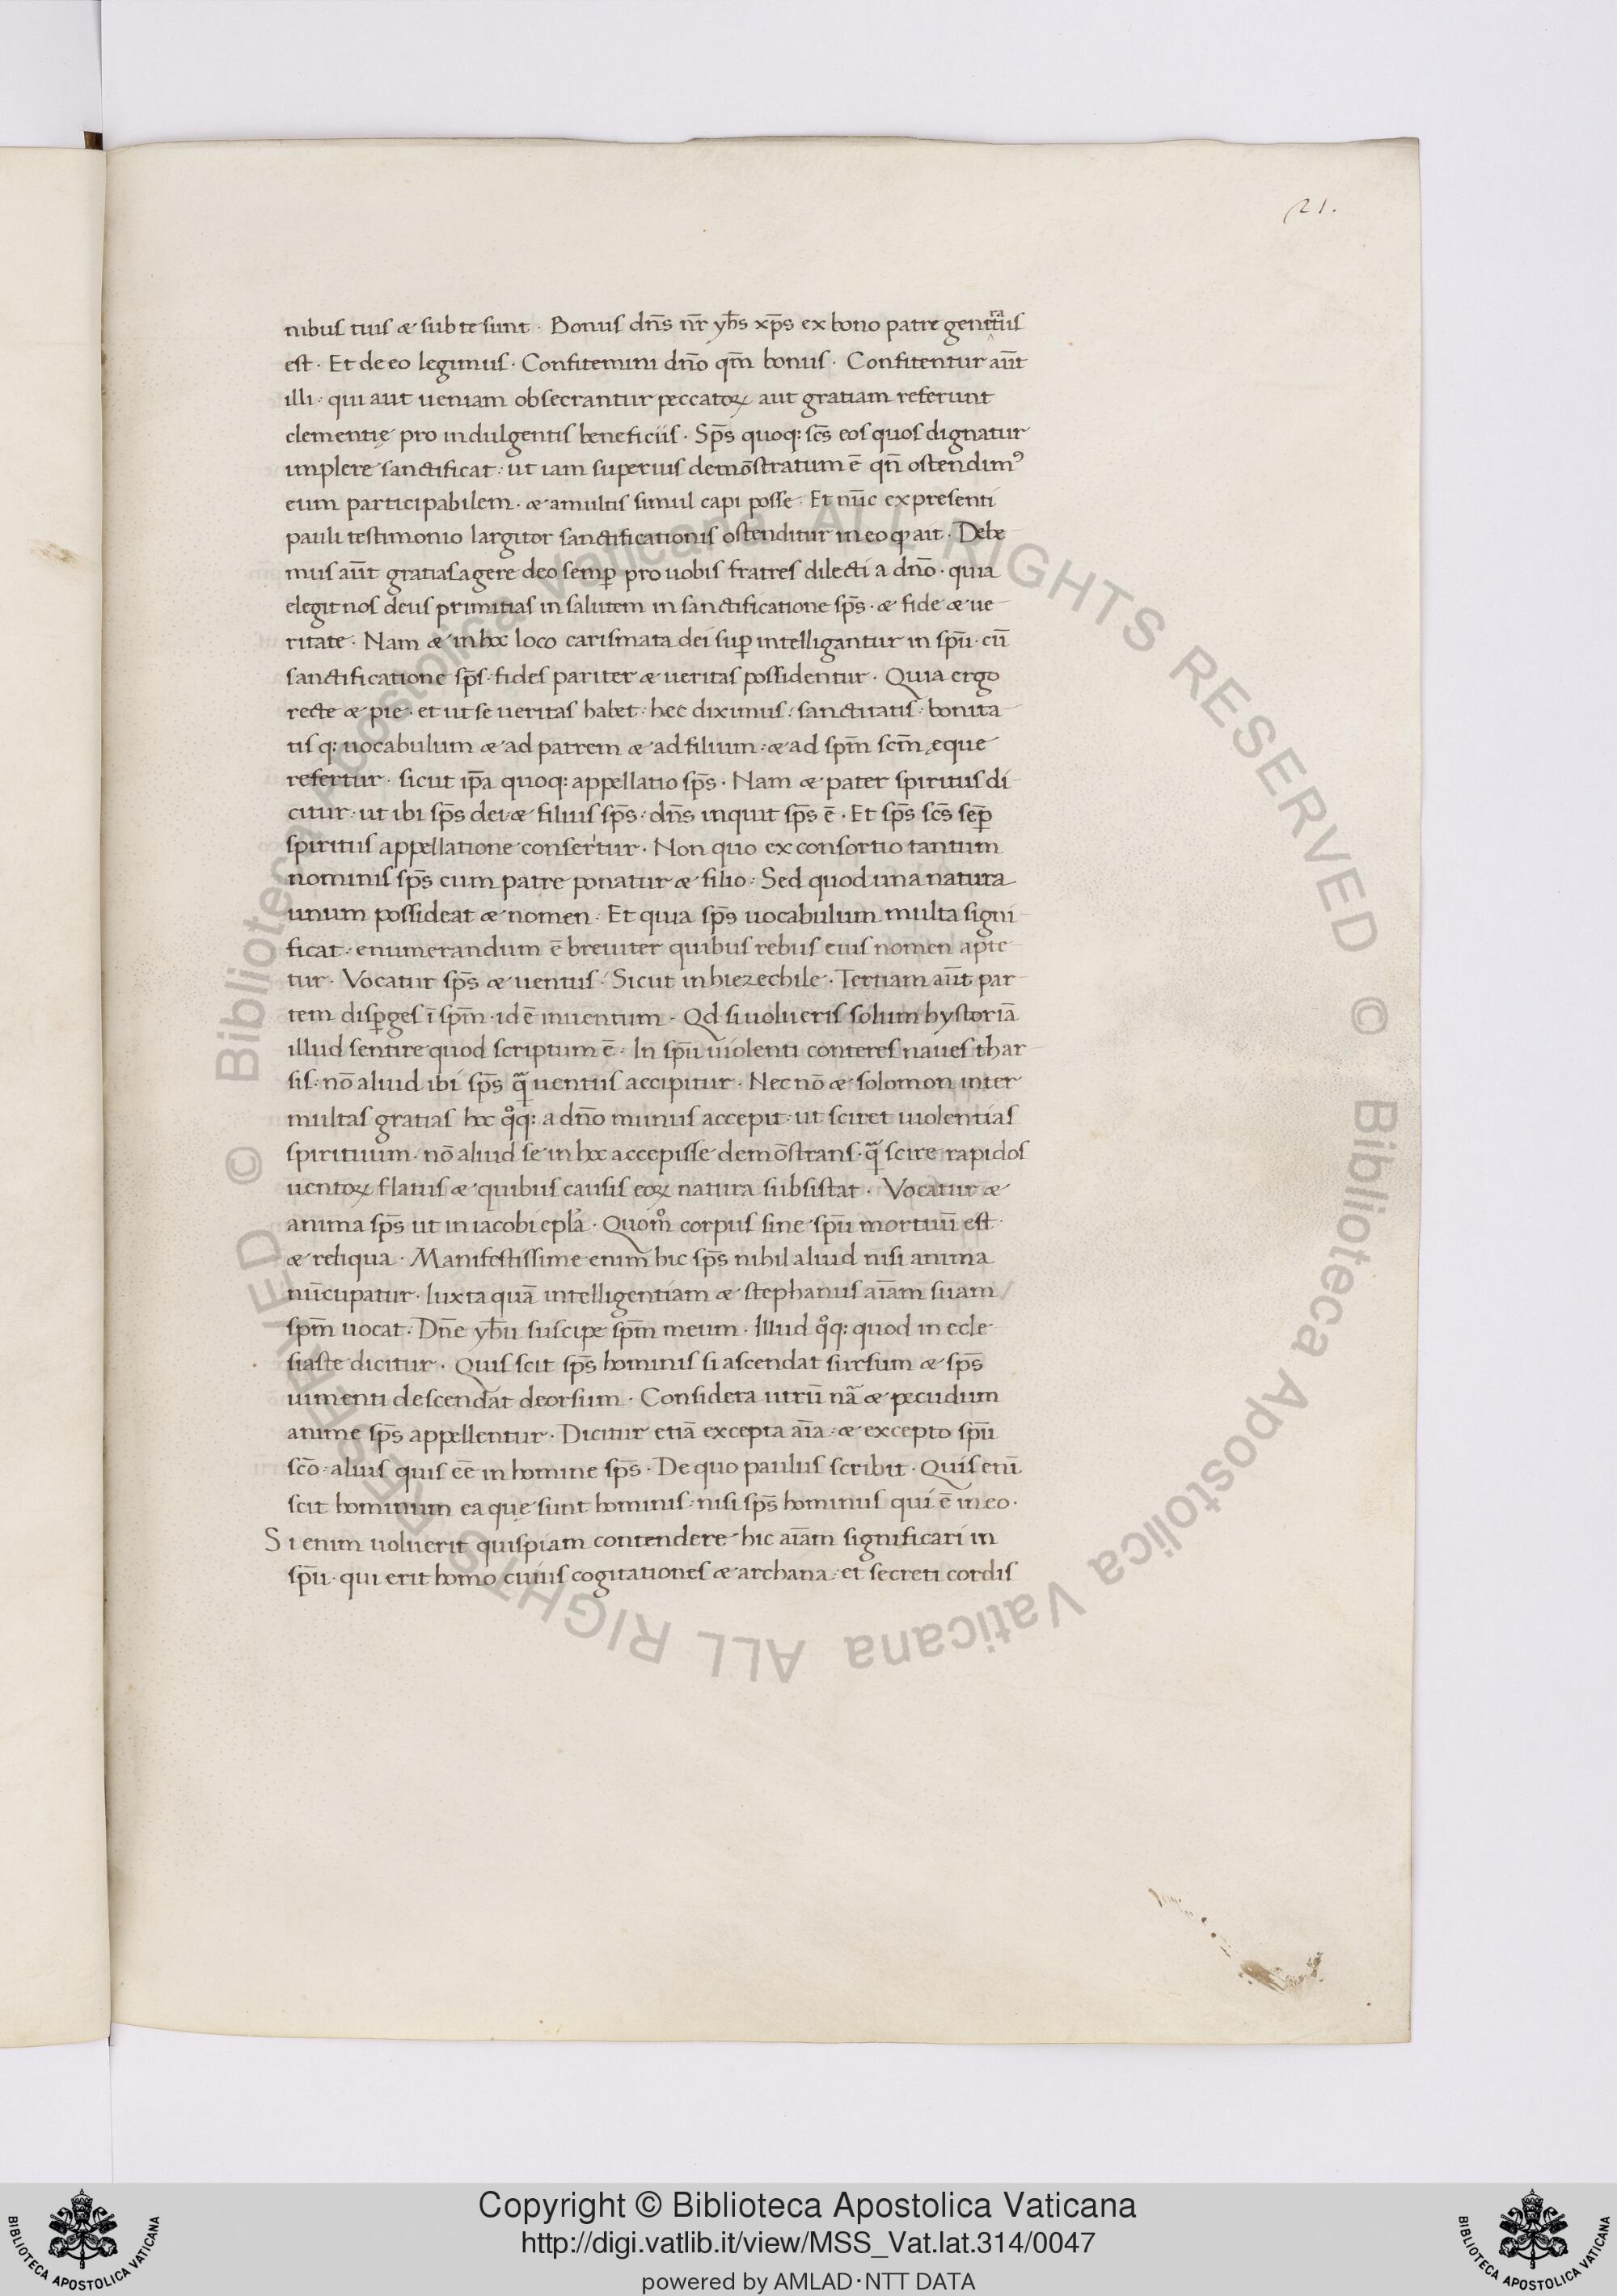 21.
nibus tuis æ sub te sunt · Bonus dn̄s nr̄ yħs xp̄s ex bono patre genera⁠tus
est · Et de eo legimus · Confitemini dn̄o qm̄ bonus · Confitentur aūt
illi · qui aut ueniam obsecrantur peccatoꝝ aut gratiam referunt
clementię pro indulgentis beneficiis · Sp̄s quoq: sc̄s eos quos dignatur
implere sanctificat · ut iam superius demōstratum ē qn̄ ostendimꝰ
eum participabilem · æ amultis simul capi posse · Et nūc ex presenti
pauli testimonio largitor sanctificationis ostenditur in eo ꝙ ait · Debe
mus aūt gratias agere deo semꝑ pro uobis fratres dilecti a dn̄o · quia
elegit nos deus primitias in salutem in sanctificatione sp̄s · æ fide æ ue
ritate · Nam æ in hoc loco carismata dei suꝑ intelligantur in sp̄u · cū
sanctificatione sp̄s · fides pariter æ ueritas possidentur · Quia ergo
recte æ pie · et ut se ueritas habet · hec diximus · sanctitatis · bonita
tis q: uocabulum æ ad patrem æ ad filium · æ ad sp̄m sc̄m ęque
refertur · sicut ip̄a quoq: appellatio sp̄s · Nam æ pater spiritus di
citur · ut ibi sp̄s dei · æ filius sp̄s · dn̄s inquit sp̄s ē · Et sp̄s sc̄s seꝑ
spiritus appellatione consertur · Non quo ex consortio tantum
nominis sp̄s cum patre ponatur æ filio · Sed quod una natura
unum possideat æ nomen · Et quia sp̄s uocabulum multa signi
ficat · enumerandum ē breuiter quibus rebus eius nomen apte
tur · Vocatur sp̄s æ uentus · Sicut in hiezechile · Tertiam aūt par
tem disꝑges ī sp̄m · id ē inuentum · Qd si uolueris solum hystoriā
illud sentire quod scriptum ē · In sp̄u uiolenti conteres naues thar
sis · nō aliud ibi sp̄s qͣ̄ uentus accipitur · Nec nō æ solomon inter
multas gratias hoc qͦq: a dn̄o munus accepit · ut sciret uiolentias
spirituum · nō aliud se in hoc accepisse demōstrans · qͣ̄ scire rapidos
uentoꝝ flatus æ quibus causis eoꝝ natura subsistat · Vocatur æ
anima sp̄s ut in iacobi epl̄a · Quomͦ corpus sine sp̄u mortuū est
æ reliqua · Manifestissime enim hic sp̄s nihil aliud nisi anima
nūcupatur · Iuxta quā intelligentiam æ stephanus aīam suam
sp̄m uocat · Dn̄e yħu suscipe sp̄m meum · Illud qͦq: quod in ecle
siaste dicitur · Quis scit sp̄s hominis si ascendat sursum æ sp̄s
uimenti descendat deorsum · Considera utrū nā æ pecudum
anime sp̄s appellentur · Dicitur etiā excepta aīa · æ excepto sp̄u
sc̄o · alius quis eē in homine sp̄s · De quo paulus scribit · Quis enī
scit hominum ea que sunt hominis · nisi sp̄s hominus qui ē in eo ·
Si enim uoluerit quispiam contendere hic aīam significari in
sp̄u · qui erit homo cuius cogitationes æ archana · et secreti cordis
© Biblioteca Apostolica Vaticana ALL RIGHTS RESERVED © Biblioteca Apostolica Vaticana ALL RIGHTS RESERVED
Copyright © Biblioteca Apostolica Vaticana
http://digi.vatlib.it/view/MSS_Vat.lat.314/0047
powered by AMLAD·NTT DATA
BIBLIOTECA APOSTOLICA VATICANA
BIBLIOTECA APOSTOLICA VATICANA